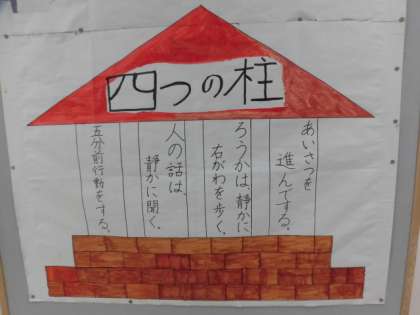 四つの柱
あいさつを
進んでする。
ろうかは、静かに
右がわを歩く。
人の話は、
静かに聞く。
五分前行動をする。